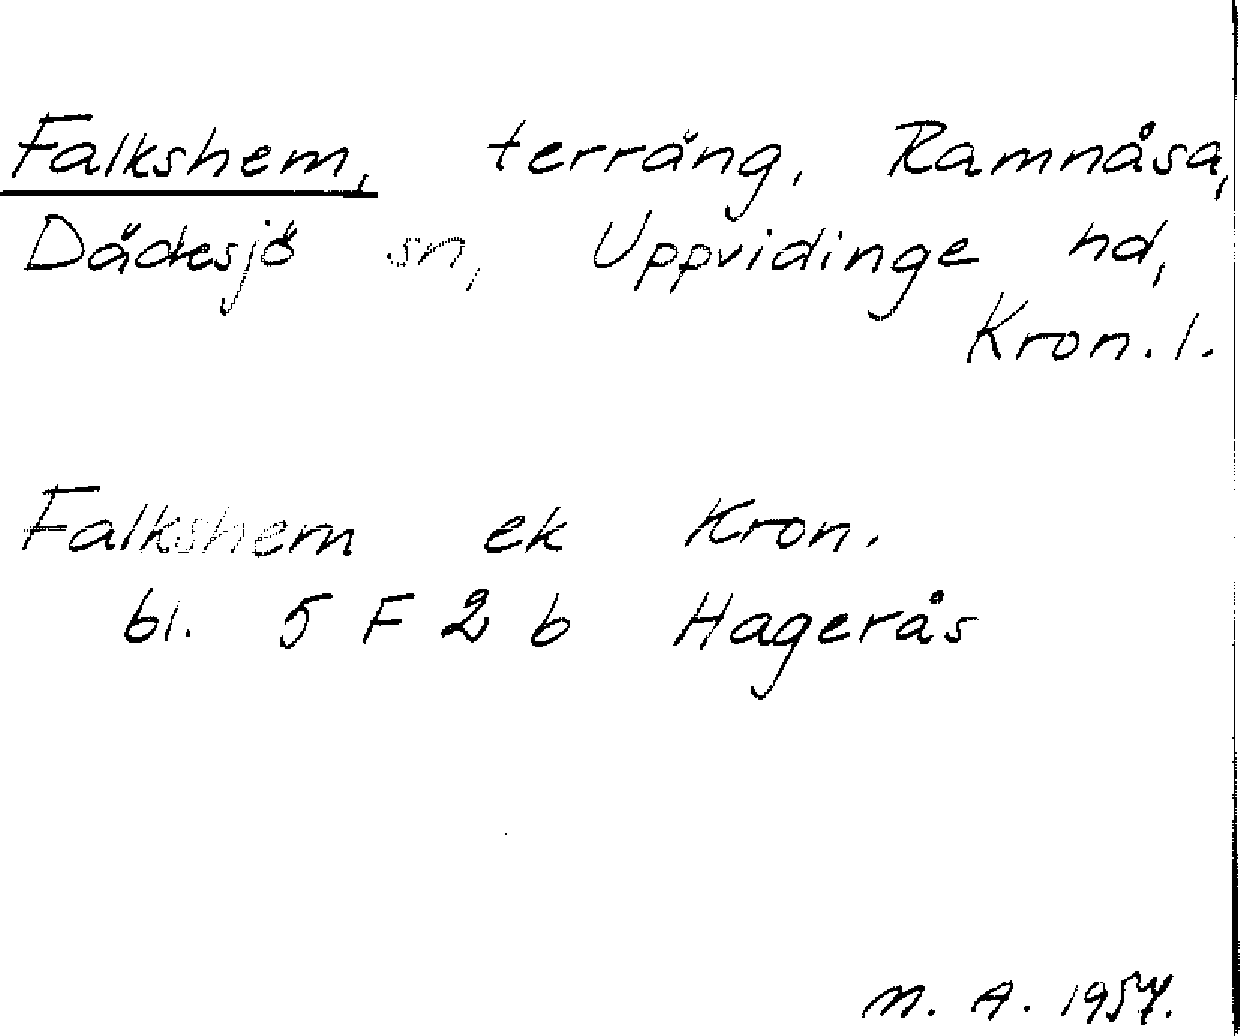 Falkshem, terräng, Ramnåsa,
Dädesjö sn, Uppvidinge hd,
Kron. l.
Falkshem ek Kron.
bl. 5 F 2 b Hagerås
M. A. 1957.